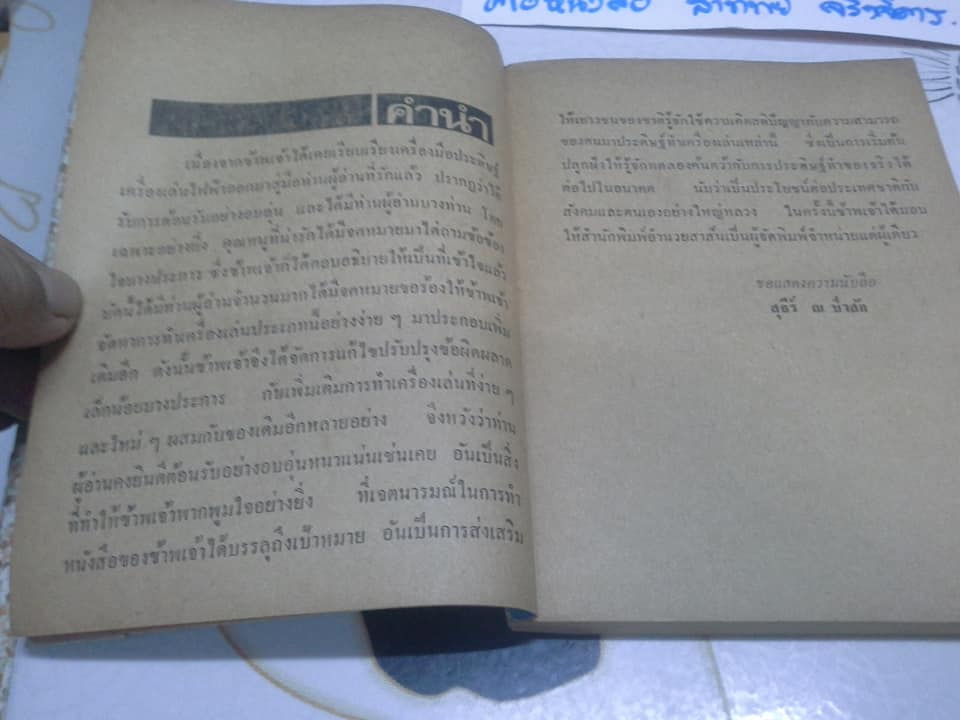 คำนำ
เนื่องจากข้าพเจ้าได้เคยเรียบเรียงเครื่องมือประดิษฐ์
เครื่องเล่นไฟฟ้าออกมาสู่มือท่านผู้อ่านที่รักแล้ว ปรากฏว่าได้
รับการต้อนรับอย่างอบอุ่น และได้มีท่านผู้อ่านบางท่าน โดย
เฉพาะอย่างยิ่ง คุณหนูที่น่ารักได้มีจดหมายมาไต่ถามข้อข้อง
ใจบางประการ ซึ่งข้าพเจ้าก็ได้ตอบอธิบายให้เป็นที่เข้าใจแล้ว
บัดนี้ได้มีท่านผู้อ่านจำนวนมากได้มีจดหมายขอร้องให้ข้าพเจ้า
จัดหาการทำเครื่องเล่นประเภทนี้อย่างง่าย ๆ มาประกอบเพิ่ม
เติมอีก ดังนั้นข้าพเจ้าจึงได้จัดการแก้ไขปรับปรุงข้อผิดพลาด
เล็กน้อยบางประการ กับเพิ่มเติมการทำเครื่องเล่นที่ง่าย ๆ
และใหม่ ๆ ผสมกับของเดิมอีกหลายอย่าง จึงหวังว่าท่าน
ผู้อ่านคงยินดีต้อนรับอย่างอบอุ่นหนาแน่นเช่นเคย อันเป็นสิ่ง
ที่ทำให้ข้าพเจ้าพากพูมใจอย่างยิ่ง ที่เจตนารมณ์ในการทำ
หนังสือของข้าพเจ้าได้บรรลุถึงเป้าหมาย อันเป็นการส่งเสริม
ให้เยาวชนของชาติรู้จักใช้ความคิดสติปัญญากับความสามารถ
ของตนมาประดิษฐ์ทำเครื่องเล่นเหล่านี้ ซึ่งเป็นการเริ่มต้น
ปลูกฝังให้รู้จักทดลองค้นคว้ากับการประดิษฐ์ทำของจริงได้
ต่อไปในอนาคต นับว่าเป็นประโยชน์ต่อประเทศชาติกับ
สังคมและตนเองอย่างใหญ่หลวง ในครั้งนี้ข้าพเจ้าได้มอบ
ให้สำนักพิมพ์อำนวยสาส์นเป็นผู้จัดพิมพ์จำหน่ายแต่ผู้เดียว
ขอแสดงความนับถือ
สุธีร์ ณ ป่าสัก